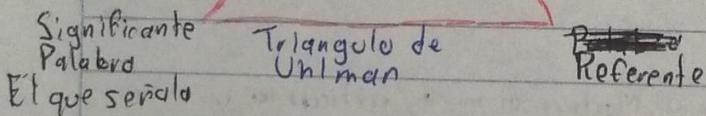 Significante
Palabra
El que señala
Triangulo de
Uhlman
Referente